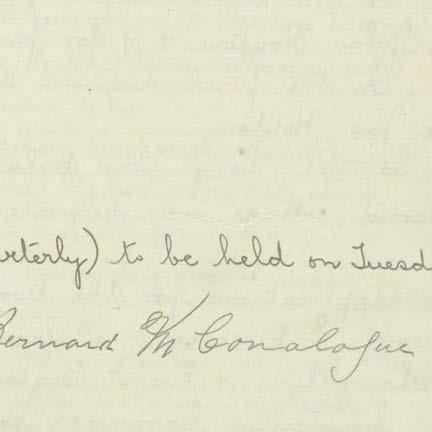 rterly) to be held on Tuesd
Bernard McConalogue